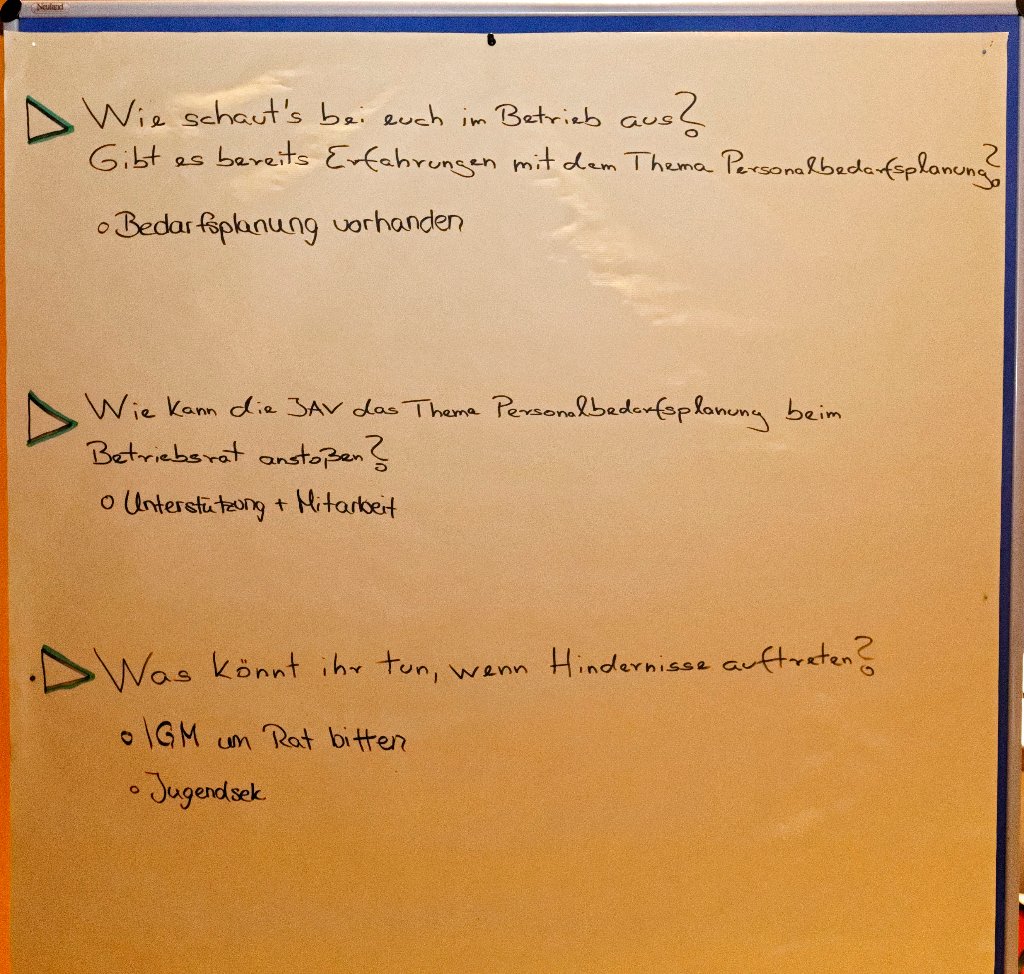 Neuland
Wie schaut's bei euch im Betrieb aus?
Gibt es bereits Erfahrungen mit dem Thema Personalbedarfsplanung?
○ Bedarfsplanung vorhanden
Wie kann die JAV das Thema Personalbedarfsplanung beim
Betriebsrat anstoßen?
○ Unterstützung + Mitarbeit
Was könnt ihr tun, wenn Hindernisse auftreten?
○ IGM um Rat bitten
○ Jugendsek